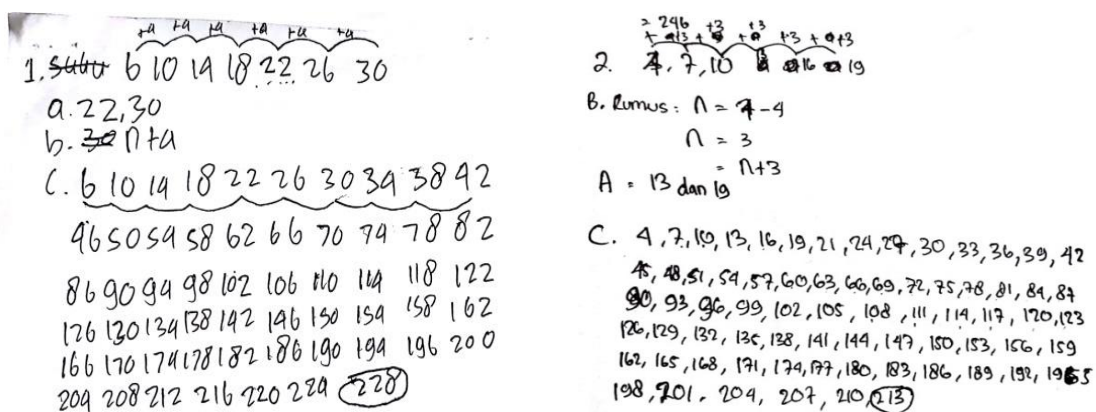 +4 +4 +4 +4 +4 +4
1. 6 10 14 18 22 26 30
a. 22,30
b. n+4
C. 6 10 14 18 22 26 30 34 38 42
46 50 54 58 62 66 70 74 78 82
86 90 94 98 102 106 110 114 118 122
126 130 134 138 142 146 150 154 158 162
166 170 174 178 182 186 190 194 196 200
204 208 212 216 220 224 228
= 246 +3 +3
+3 + + +3 + +3
2. 4, 7, 10 13 16 19
B. Rumus: n = 7-4
n = 3
= n+3
A = 13 dan 19
C. 4, 7, 10, 13, 16, 19, 21, 24, 27, 30, 33, 36, 39, 42
45, 48, 51, 54, 57, 60, 63, 66, 69, 72, 75, 78, 81, 84, 87
90, 93, 96, 99, 102, 105, 108, 111, 114, 117, 120, 123
126, 129, 132, 135, 138, 141, 144, 147, 150, 153, 156, 159
162, 165, 168, 171, 174, 177, 180, 183, 186, 189, 192, 195
198, 201, 204, 207, 210, 213